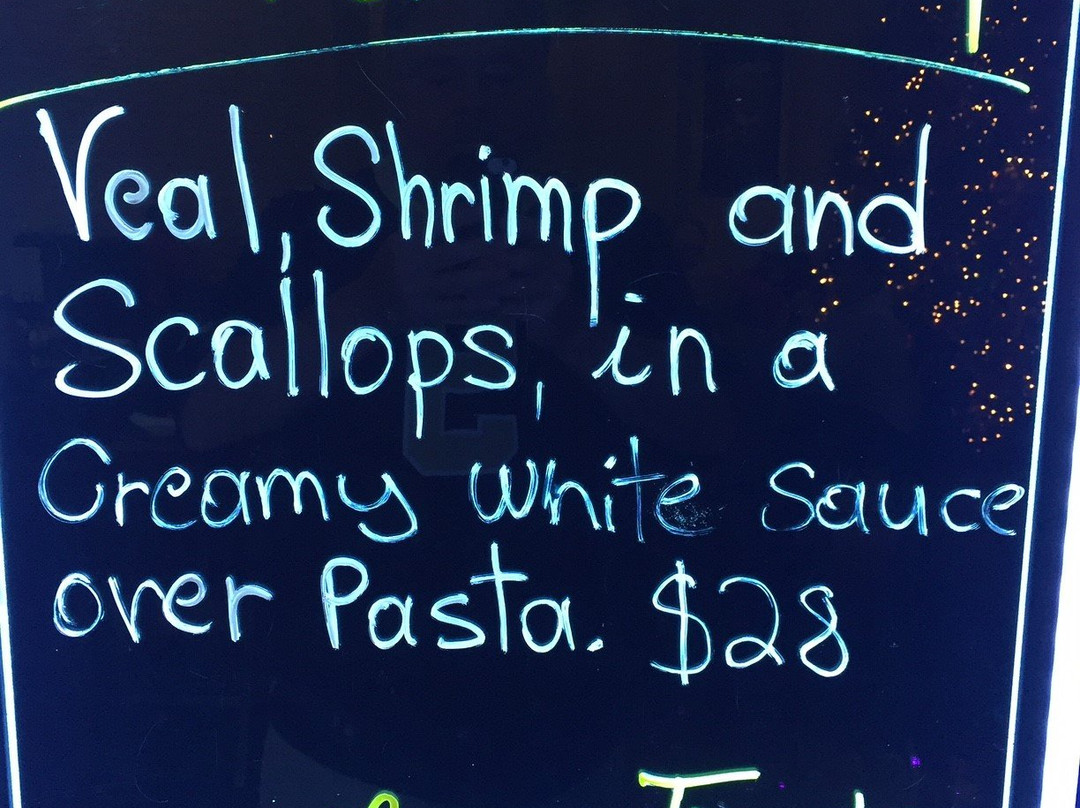 Veal, Shrimp and
Scallops, in a
Creamy white sauce
over Pasta. $28